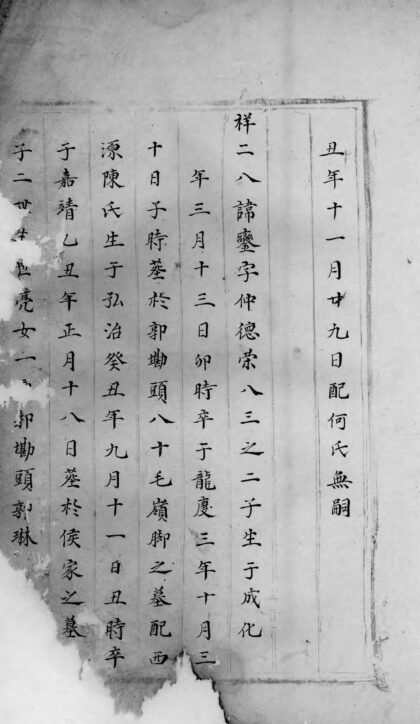 丑年十一月廿九日配何氏無嗣
祥二八諱鑾字仲德荣八三之二子生于成化
年三月十三日卯時卒于龍慶三年十月三
十日子時塟於郭墈頭八十毛嶺脚之墓配西
源陳氏生于弘治癸丑年九月十一日丑時卒
于嘉靖乙丑年正月十八日塟於侯家之墓
子二世 亮女一 郭墈頭郭琳